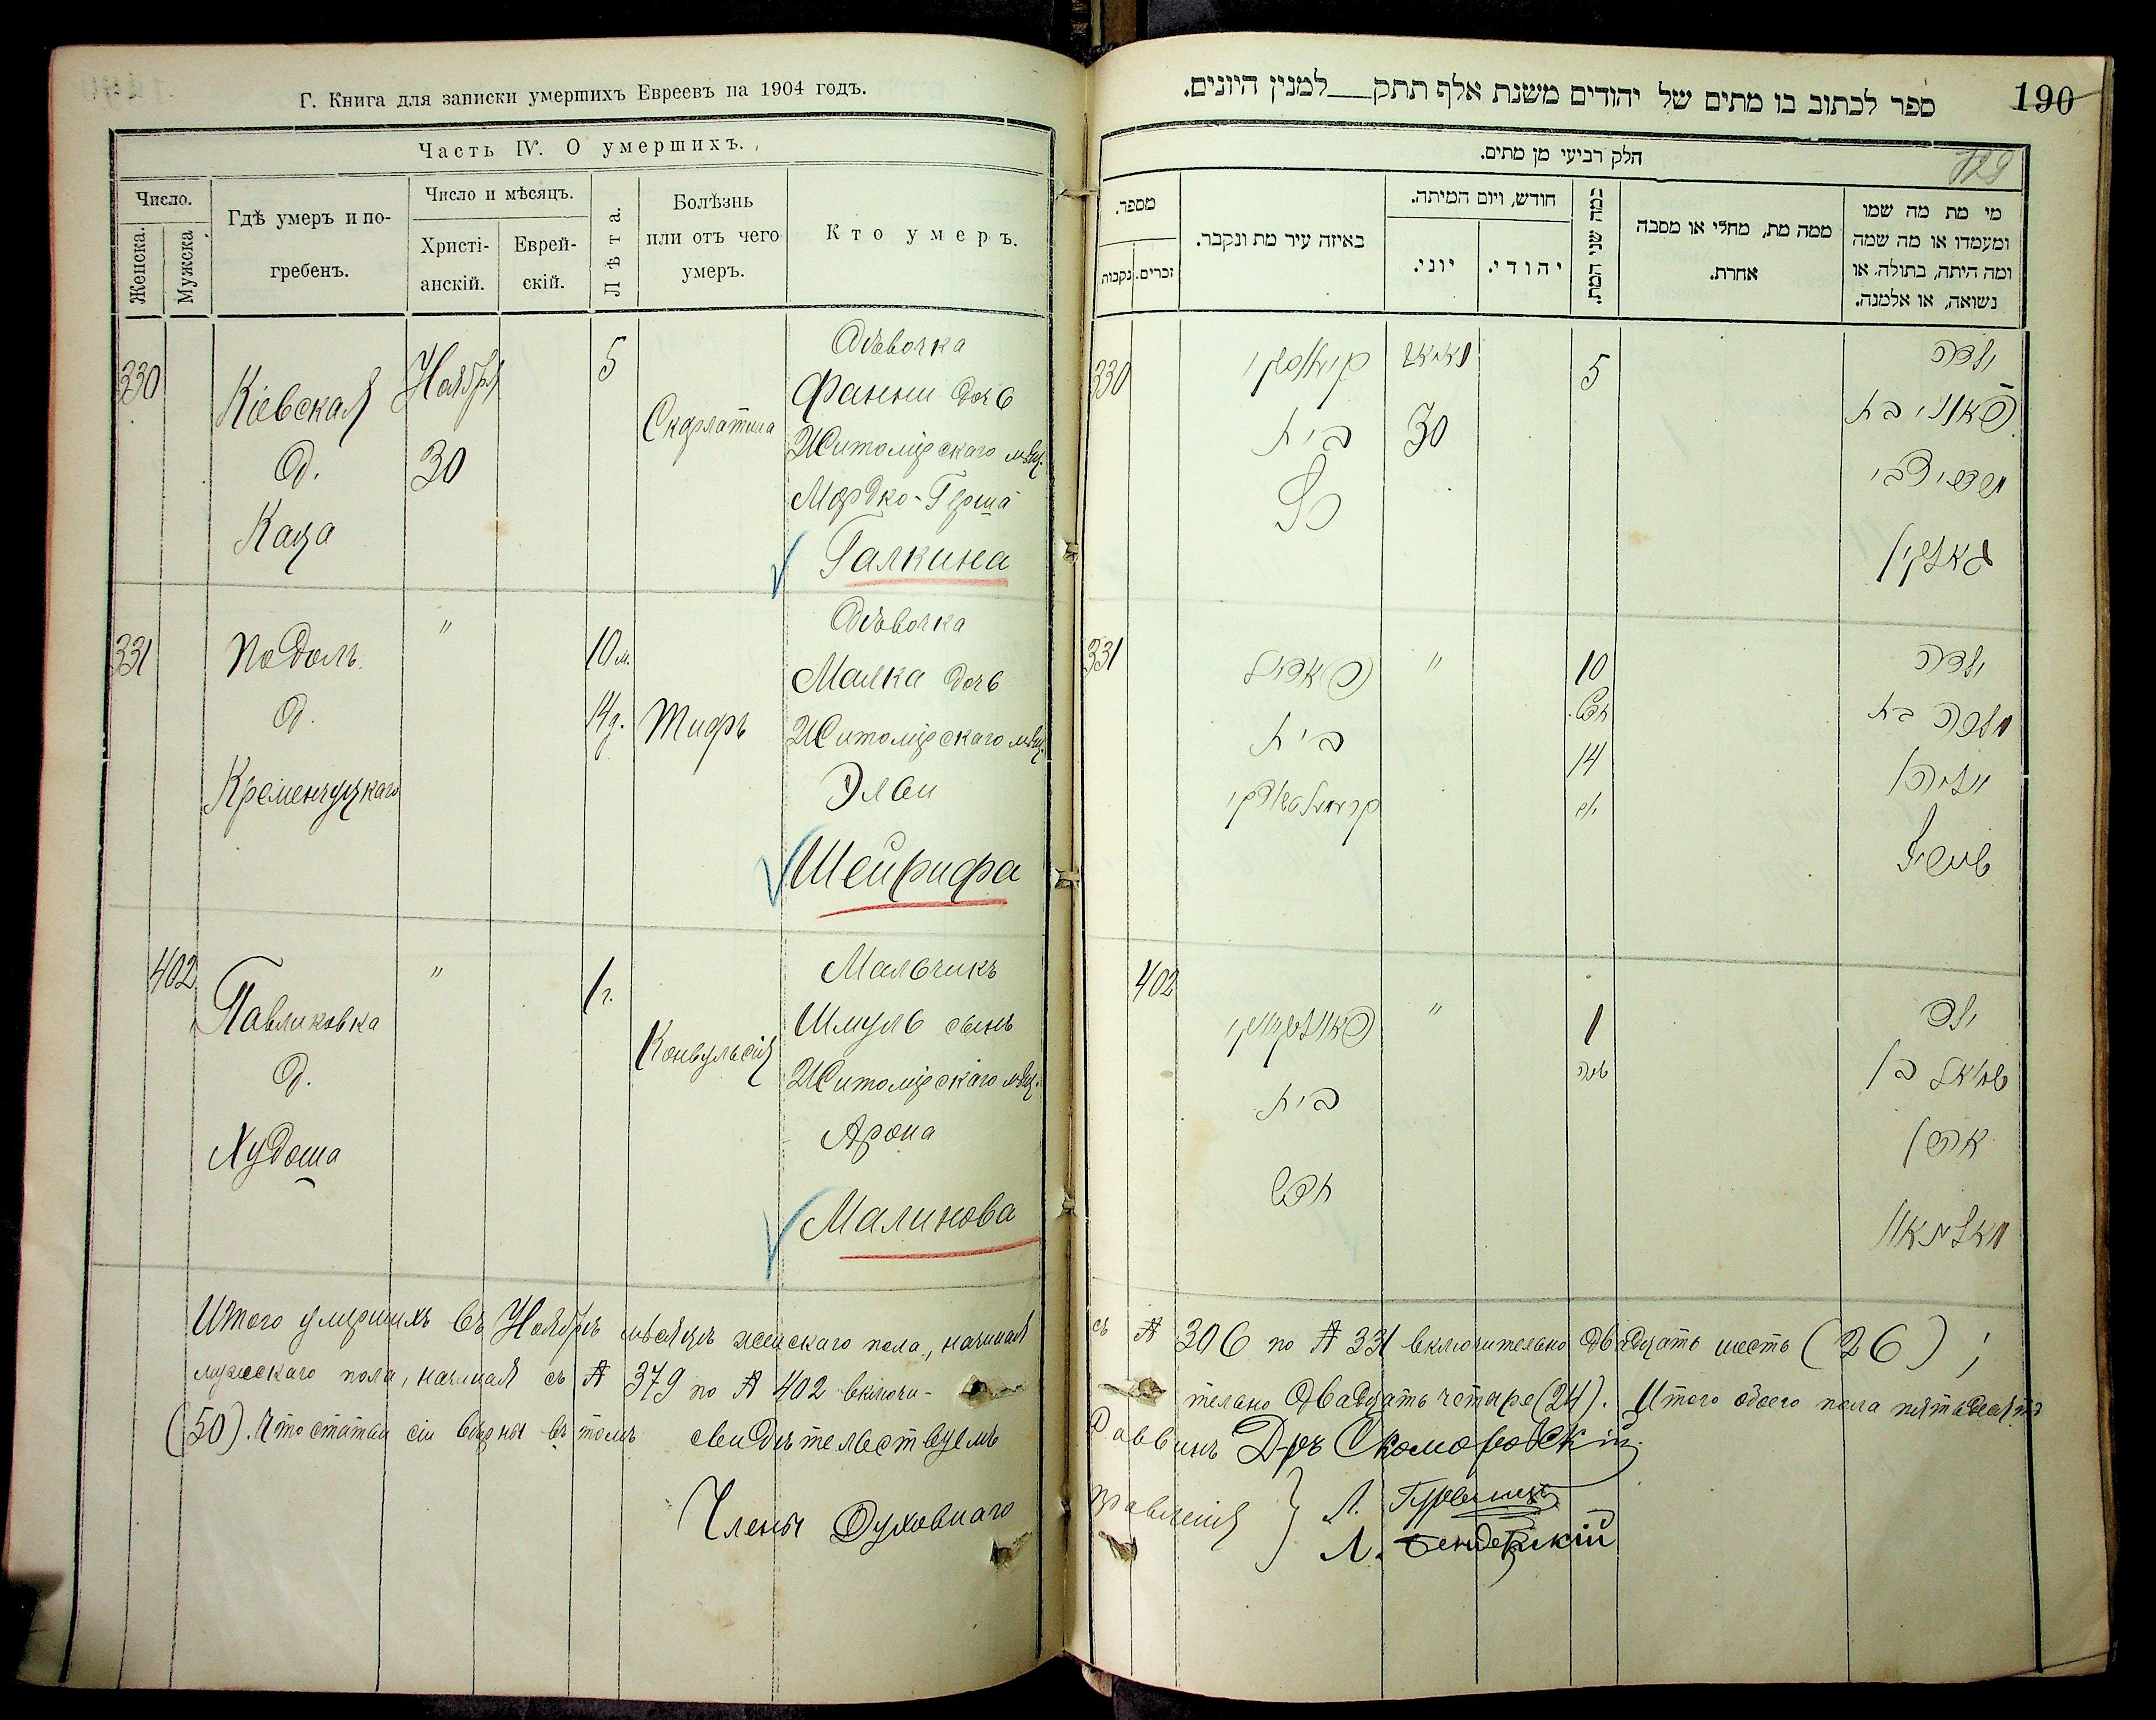 Г. Книга для записки умершихъ Евреевъ на 1904 годъ.
Часть IV. О умершихъ.
Число.
Женска.
Мужска
Гдѣ умеръ и по-
гребенъ.
Число и мѣсяцъ.
Христі-
анскій.
Еврей-
скій.
Лѣта.
Болѣзнь
или отъ чего
умеръ.
Кто умеръ.
330
Кіевская
д.
Каца
Ноября
30
5
Скарлатина
Дѣвочка
Фанни дочь
Житомірскаго мѣщ.
Мордко-Герша
Галкина
331
Подолъ
д.
Кременчуцкаго
"
10 м.
14 д.
Тифъ
Дѣвочка
Малка дочь
Житомірскаго мѣщ.
Эльи
Шейрифа
402
Павликовка
д.
Худоша
"
1 г.
Конвульсія
Мальчикъ
Шмуль сынъ
Житомірскаго мѣщ.
Арона
Малинова
Итого умершихъ въ Ноябрѣ мѣсяцѣ женскаго пола, начиная
мужескаго пола, начиная съ № 379 по № 402 включи-
(50). Что статьи сіи вѣрны въ томъ свидѣтельствуемъ
Члены Духовнаго
190
ספר לכתוב בו מתים של יהודים משנת אלף תתק__למנין היונים.
129
חלק רביעי מן מתים.
מספר.
נקבות
זכרים.
באיזה עיר מת ונקבר.
חודש, ויום המיתה.
יוני.
יהודי.
כמה שני המת.
ממה מת, מחלי או מסבה
אחרת.
מי מת מה שמו
ומעמדו או מה שמה
ומה היתה, בתולה, או
נשואה, או אלמנה.
330
בית
כץ
30
5
ילדה
פאני בת
גאלקין
331
פאדאל
בית
"
10
חדש
14
יום
ילדה
מלכה בת
402
בית
"
1
שנה
ילד
שמואל בן
אהרן
съ № 306 по № 331 включительно двадцать шесть (26);
тельно двадцать четыре (24). Итого обоего пола пятьдесятъ
Раввинъ Д-ръ Скомаровскій
правленія } Л. Гурвичъ
Л. Бендерскій